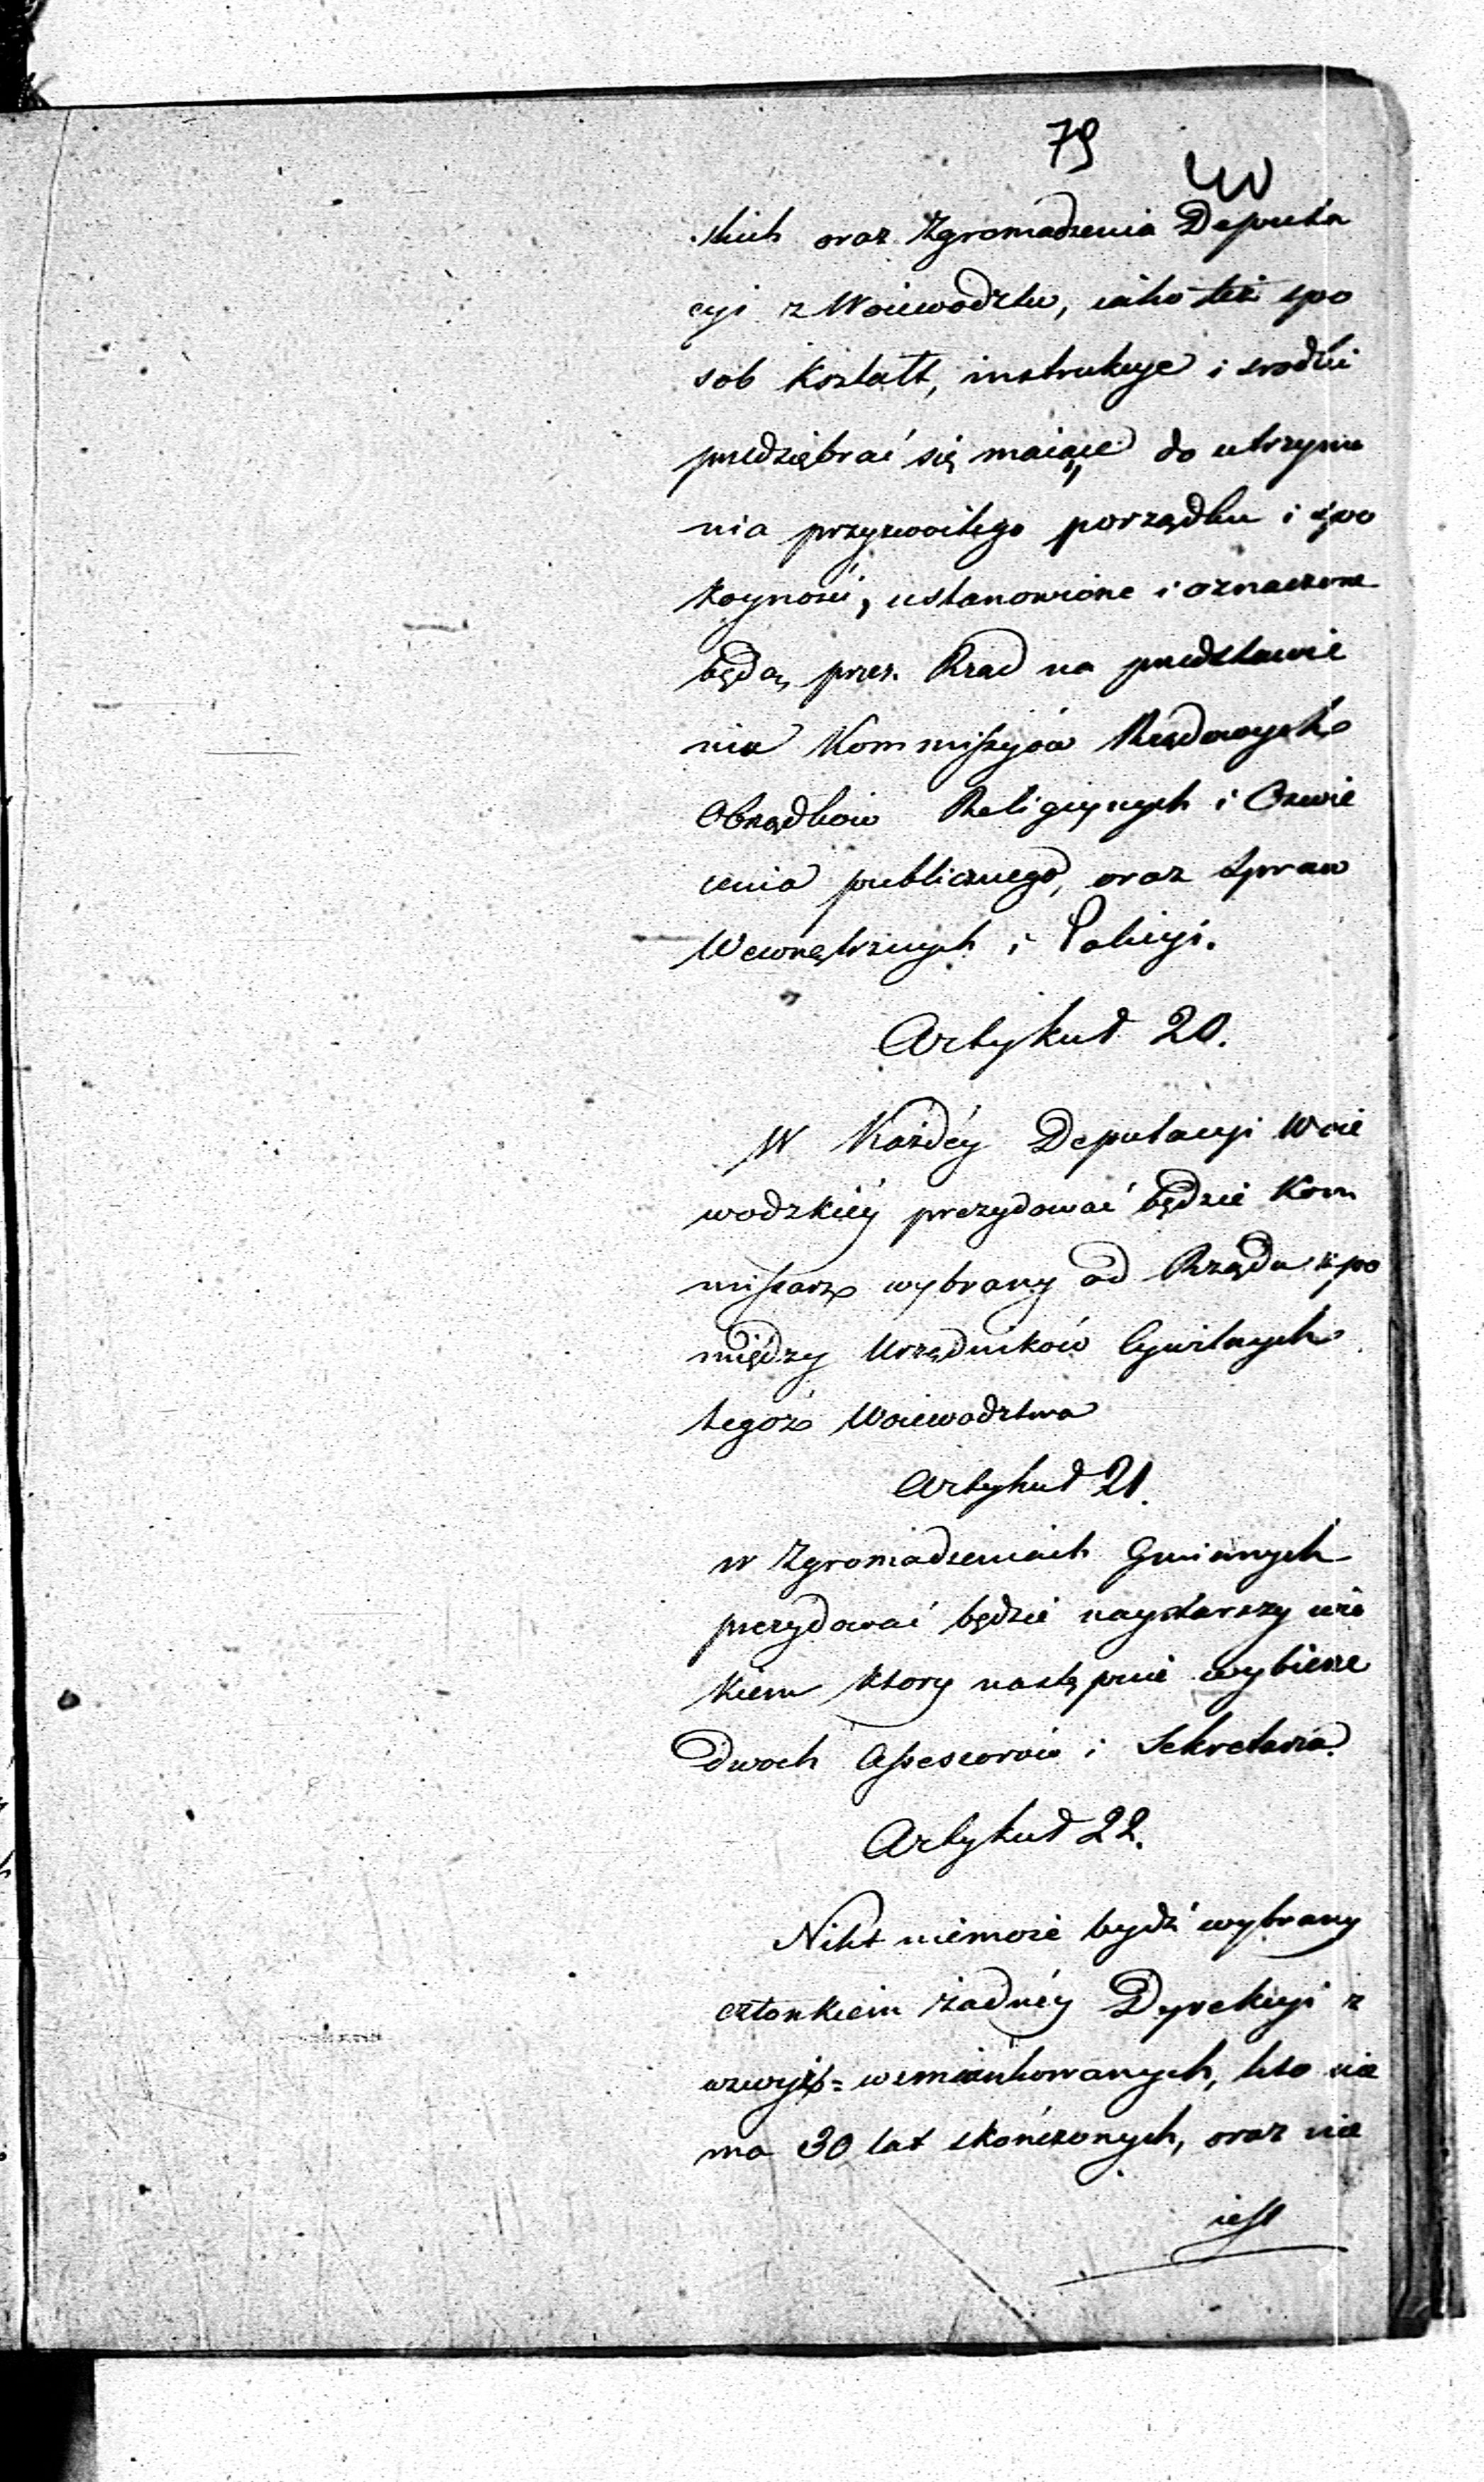 79
skich oraz Zgromadzenia Deputa
cyi z Woiewodztw, iako też spo
sob kształt, instrukcye i srodki
przedziębrać się maiące do utrzyma
nia przyzwoitego porządku i spo
koyności, ustanowione i oznaczone
będą przez Rząd na przedstawie
nia Kommissyów Rządowych
Obrządków Religiynych i Oswie
cenia publicznego, oraz Spraw
Wewnętrznych i Policyi.
Artykuł 20.
W Każdéy Deputacyi Woie
wodzkiéy prezydować będzie Kom
missarz wybrany od Rządu z po
między Urzędników Cywilnych
tegoż Woiewodztwa
Artykuł 21.
w Zgromadzeniach Gminnych
prezydować będzie naystarszy wie
kiem ktory następnie wybierze
Dwoch Assessorów i Sekretarza.
Artykuł 22.
Nikt niemoże bydź wybrany
członkiem żadnéy Dyrekcyi z
wzwyż=wzmiankowanych, kto nie
ma 30 lat skończonych, oraz nie
iest